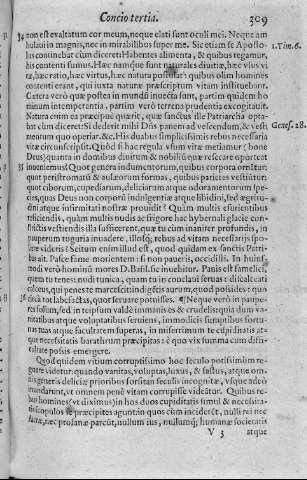 Concio tertia. 309
34 non est exaltatum cor meum, neque elati sunt oculi mei. Neque am
bulaui in magnis, nec in mirabilibus super me. Sic etiam se Aposto-
lus continebat cùm diceret: Habentes alimenta, & quibus tegamur, 1. Tim. 6.
his contenti sumus. Hæc namque sunt naturales diuitiæ, hæc vius vi
tæ, hæc ratio, hæc virtus, hæc natura postulat: quibus olim homines
contenti erant, qui iuxta naturæ præscriptum vitam instituebant.
Cætera verò quæ postea in mundi inuecta sunt, partim dæmonis ho
minum intemperantia, partim verò terrena prudentia excogitauit.
Natura enim ea præcipuè quærit, quæ sanctus ille Patriarcha opta-
bat cùm diceret: Si dederit mihi Dñs panem ad vescendum, & vesti Genes. 28.
mentum quo operiar. &c. His duabus simplicissimis rebus necessaria
vitæ circunscripsit. Quòd si hac regula vsum vitæ metiamur (bone
Deus) quanta in domibus diuitum & nobiliũ quæ resecare oporteat
35 inueniemus! Quot genera indumentorum, quibus corpora ornãtur:
quot peristromatũ & aulæorum formas, quibus parietes vestiũtur:
quot ciborum, cupediarum, deliciarum atque odoramentorum spe-
cies, quas Deus non corporũ indulgentiæ atque libidini, sed ægritu-
dini atque infirmitati nostræ prouidit? Quàm multis esurientibus
triscendis, quàm multis nudis ac frigore hac hybernali glacie con-
strictis vestiendis illa sufficerent, quæ tu cùm inaniter profundis, in
pauperum tuguria inuadere, illosq; rebus ad vitam necessarijs spo-
liare videris? Scitum enim illud est, quod quidam ex sanctis Patri-
bus ait. Pasce fame morientem: si non paueris, occidisti. In huius-
modi verò hominũ mores D. Basil. sic inuehitur. Panis est famelici,
quem tu tenes: nudi tunica, quam tu in conclaui seruas: discalceati
calceus, qui penes te marcescit: indigẽtis aurum, quod possides: qua
circa tot labefactas, quot seruare potuisses. ¶ Neque verò in paupe-
res solum, sed in teipsum valdè inmanis es & crudelis: quia dum va-
nitatibus atque voluptatibus seruiens, immodicis sumptibus fortu-
nas tuas atque facultatem superas, in miserrimum te cupiditatis at-
que necessitatis barathrum præcipitas: è quo vix summa cum diffi-
cultate possis emergere.
Quod quidem vitium corruptissimo hoc seculo potissimùm re-
gnare videtur: quando vanitas, voluptas, luxus, & fastus, atque om-
nis generis deliciæ prioribus forsitan seculis incognitæ, vsque adeò
inundarunt, vt omnem penè vitam corrupisse videãtur. Quibus re-
bus homines (vt diximus) in hos duos cupiditatis simul & necessita-
tis scopulos se præcipites agunt: in quos cùm inciderẽt, nulli rei nec
sacræ, nec profanæ parcũt, nullum ius, nullumq; humanæ societatis
V 3 atque